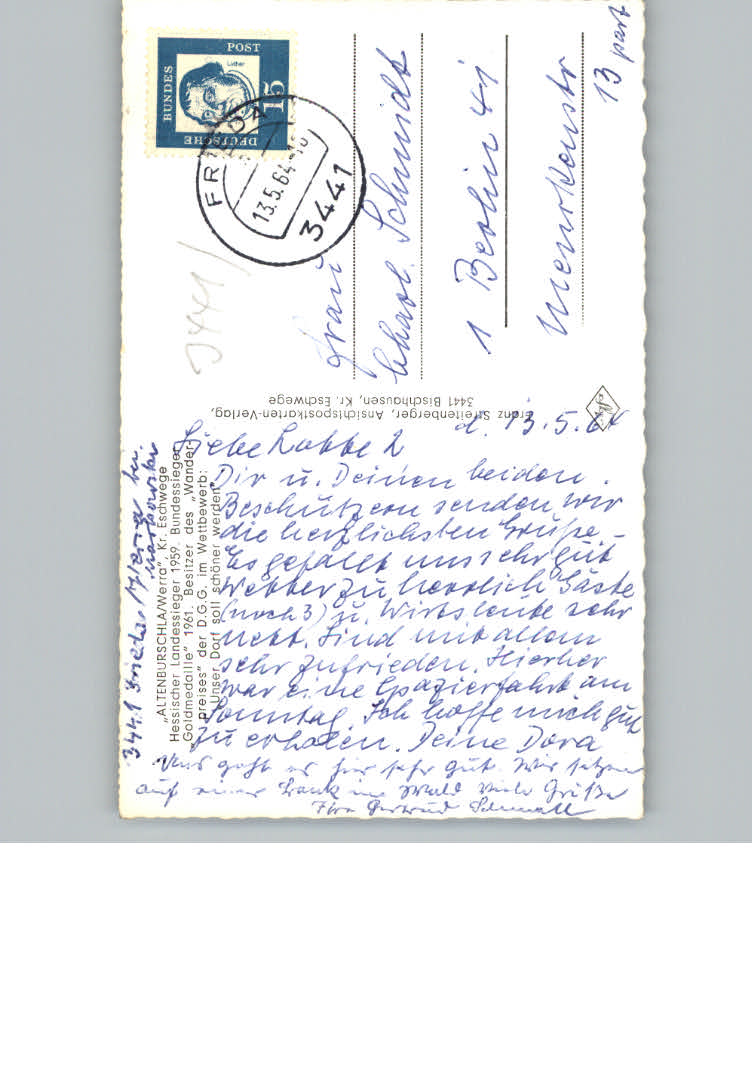 DEUTSCHE
BUNDES
POST
Luther
15
FRIEDA
13.5.64-10
3441
3441/
Frau
Charl. Schmidt
1 Berlin 41
13 part
Franz Streitenberger, Ansichtspostkarten-Verlag,
3441 Bischhausen, Kr. Eschwege
3441 Frieda / Werra bei
„ALTENBURSCHLA/Werra", Kr. Eschwege
Hessischer Landessieger 1959. Bundessieger
Goldmedaille" 1961. Besitzer des „Wander-
preises" der D.G.G. im Wettbewerb:
„Unser Dorf soll schöner werden"
d. 13.5.64
Liebe Lotte
Dir u. Deinen beiden
Beschützern senden wir
die herzlichsten Grüße. –
Es gefällt uns sehr gut
Wetter zu herrlich Gäste
(noch 3) u. Wirtsleute sehr
nett. Sind mit allem
sehr zufrieden. Hierher
war eine Spazierfahrt am
Sonntag. Ich hoffe mich gut
zu erholen. Deine Dora
Uns geht es hier sehr gut. Wir sitzen
auf einer Bank im Wald Viele Grüße
Ihre Gertrud